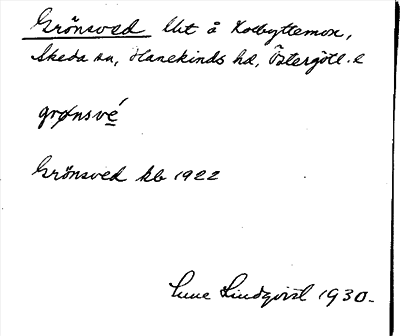 Grönsved lht å Kolbyttemon,
Skeda sn, Hanekinds hd, Östergötl. l
grønsvé
Grönsved kb 1922
Sune Lindqvist 1930.